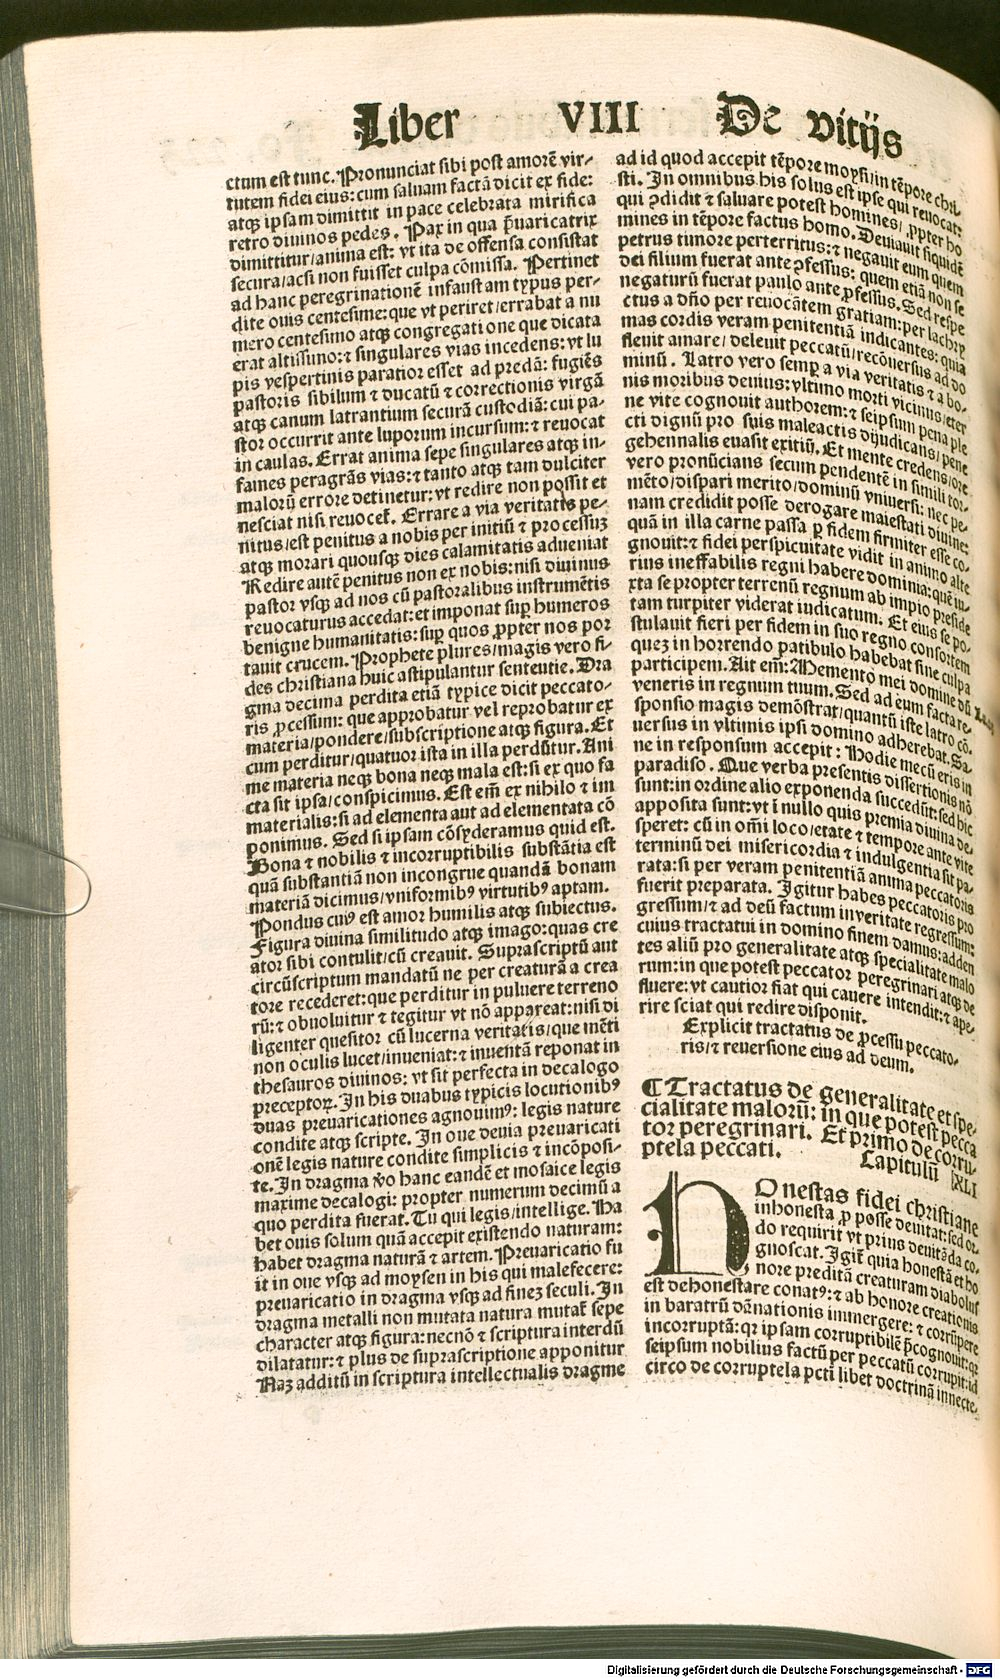 Liber VIII De vitijs
ctum est tunc. Pronunciat sibi post amorē vir-
tutem fidei eius: cum saluam factā dicit ex fide:
atqꝫ ipsam dimittit in pace celebrata mirifica
retro diuinos pedes. Pax in qua p̄uaricatrix
dimittitur/anima est: vt ita de offensa consistat
secura/acsi non fuisset culpa cōmissa. Pertinet
ad hanc peregrinationē infaustam typus per-
dite ouis centesime: que vt periret/errabat a nu
mero centesimo atqꝫ congregatione que dicata
erat altissimo: ⁊ singulares vias incedens: vt lu
pis vespertinis paratior esset ad predā: fugiēs
pastoris sibilum ⁊ ducatū ⁊ correctionis virgā
atqꝫ canum latrantium securā custodiā: cui pa-
stor occurrit ante luporum incursum: ⁊ reuocat
in caulas. Errat anima sepe singulares atqꝫ in-
faines peragrās vias: ⁊ tanto atqꝫ tam dulciter
malorū errore detinetur: vt redire non possit et
nesciat nisi reuocet̄. Errare a via veritatis pe-
nitus/est penitus a nobis per initiū ⁊ processuꝫ
atqꝫ morari quousqꝫ dies calamitatis adueniat
Redire autē penitus non ex nobis: nisi diuinus
pastor vsqꝫ ad nos cū pastoralibus instrumētis
reuocaturus accedat: et imponat suꝑ humeros
benigne humanitatis: suꝑ quos ꝓpter nos por
tauit crucem. Prophete plures/magis vero fi-
des christiana huic astipulantur sententie. Dra
gma decima perdita etiā typice dicit peccato-
ris ꝓcessum: que approbatur vel reprobatur ex
materia/pondere/subscriptione atqꝫ figura. Et
cum perditur/quatuor ista in illa perdūtur. Ani
me materia neqꝫ bona neqꝫ mala est: si ex quo fa
cta sit ipsa/conspicimus. Est em̄ ex nihilo ⁊ im
materialis: si ad elementa aut ad elementata cō
ponimus. Sed si ipsam cōsyderamus quid est.
Bona ⁊ nobilis ⁊ incorruptibilis substātia est
quā substantiā non incongrue quandā bonam
materiā dicimus/vniformibꝰ virtutibꝰ aptam.
Pondus cuiꝰ est amor humilis atqꝫ subiectus.
Figura diuina similitudo atqꝫ imago: quas cre
ator sibi contulit/cū creauit. Suprascriptū aut
circūscriptum mandatū ne per creaturā a crea
tore recederet: que perditur in puluere terreno
rū: ⁊ obuoluitur ⁊ tegitur vt nō appareat: nisi di
ligenter quesitor cū lucerna veritatis/que mēti
non oculis lucet/inueniat: ⁊ inuentā reponat in
thesauros diuinos: vt sit perfecta in decalogo
preceptoꝝ. In his duabus typicis locutionibꝰ
duas preuaricationes agnouimꝰ: legis nature
condite atqꝫ scripte. In oue deuia preuaricati
onē legis nature condite simplicis ⁊ incōposi-
te. In dragma v̄o hanc eandē et mosaice legis
maxime decalogi: propter numerum decimū a
quo perdita fuerat. Tu qui legis/intellige. Ha
bet ouis solum quā accepit existendo naturam:
habet dragma naturā ⁊ artem. Preuaricatio fu
it in oue vsqꝫ ad moysen in his qui malefecere:
preuaricatio in dragma vsqꝫ ad fineꝫ seculi. In
dragma metalli non mutata natura mutat̄ sepe
character atqꝫ figura: necnō ⁊ scriptura interdū
dilatatur: ⁊ plus de suprascriptione apponitur
Naꝫ additū in scriptura intellectualis dragme
ad id quod accepit tēpore moysi/in tēpore chri-
sti. In omnibus his solus est ipse qui reuocat:
qui ꝯdidit ⁊ saluare potest homines/ ꝓpter ho
mines in tēpore factus homo. Deuiauit siquidē
petrus timore perterritus: ⁊ negauit eum quem
dei filium fuerat ante ꝓfessus: quem etiā non se
negaturū fuerat paulo ante ꝓfessus. Sed respe
ctus a dn̄o per reuocātem gratiam: per lachrẏ
mas cordis veram penitentiā indicantes: quia
fleuit amare/ deleuit peccatū/recōuersus ad do
minū. Latro vero semꝑ a via veritatis ⁊ a bo-
nis moribus deuius: vltimo morti vicinus/eter
ne vite cognouit authorem: ⁊ seipsum pena ple
cti dignū pro suis maleactis dijudicans/ pene
gehennalis euasit exitiū. Et mente credens/ore
vero pronūcians secum pendentē in simili tor-
mēto/dispari merito/dominū vniuersi: nec pe-
nam credidit posse derogare maiestati diuine:
quā in illa carne passa ꝑ fidem firmiter esse co-
gnouit: ⁊ fidei perspicuitate vidit in animo alte
rius ineffabilis regni habere dominia: quē iu-
xta se propter terrenū regnum ab impio preside
tam turpiter viderat iudicatum. Et eius se po-
stulauit fieri per fidem in suo regno consortem
quez in horrendo patibulo habebat sine culpa
participem. Ait em̄: Memento mei domine dū
veneris in regnum tuum. Sed ad eum facta re-
sponsio magis demōstrat/quantū iste latro cō-
uersus in vltimis ipsi domino adherebat. Sa-
ne in responsum accepit: Hodie mecū eris in
paradiso. Que verba presentis dissertionis nō
sunt: in ordine alio exponenda succedūt: sed hic
apposita sunt: vt ī nullo quis premia diuina de-
speret: cū in om̄i loco/etate ⁊ tempore ante vite
terminū dei misericordia ⁊ indulgentia sit pa-
rata: si per veram penitentiā anima peccatoris
fuerit preparata. Igitur habes peccatoris pro
gressum/⁊ ad deū factum in veritate regressum:
cuius tractatui in domino finem damus: adden
tes aliū pro generalitate atqꝫ specialitate malo
rum: in que potest peccator peregrinari atqꝫ de
fluere: vt cautior fiat qui cauere intendit: ⁊ ape-
rire sciat qui redire disponit.
Explicit tractatus de ꝓcessu peccato-
ris/⁊ reuersione eius ad deum.
¶ Tractatus de generalitate et spe-
cialitate malorū: in que potest pecca
tor peregrinari. Et primo de corru-
ptela peccati. Capitulū XLI
HOnestas fidei christiane
inhonesta ꝓ posse deuitat: sed or-
do requirit vt prius deuitāda co-
gnoscat. Igit̄ quia honestā et ho
nore preditā creaturam diabolus
est dehonestare conatꝰ: ⁊ ab honore creationis
in baratrū dānationis immergere: ⁊ corrūpere
incorruptā: qꝛ ipsam corruptibilē p̄cognouit: qꝛ
seipsum nobilius factū per peccatū corrupit: id
circo de corruptela pcti libet doctrinā innecte-
Digitalisierung gefördert durch die Deutsche Forschungsgemeinschaft - DFG